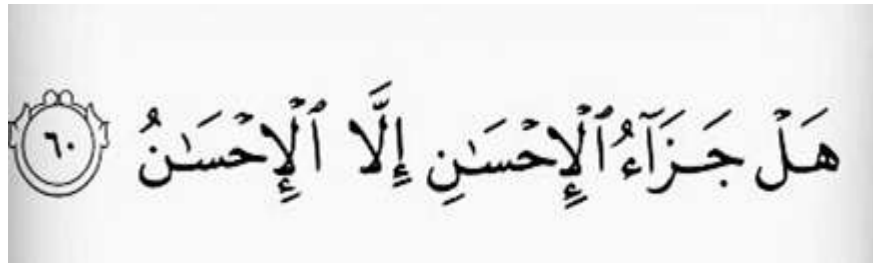 هَلْ جَزَآءُ ٱلْإِحْسَـٰنِ إِلَّا ٱلْإِحْسَـٰنُ ٦٠